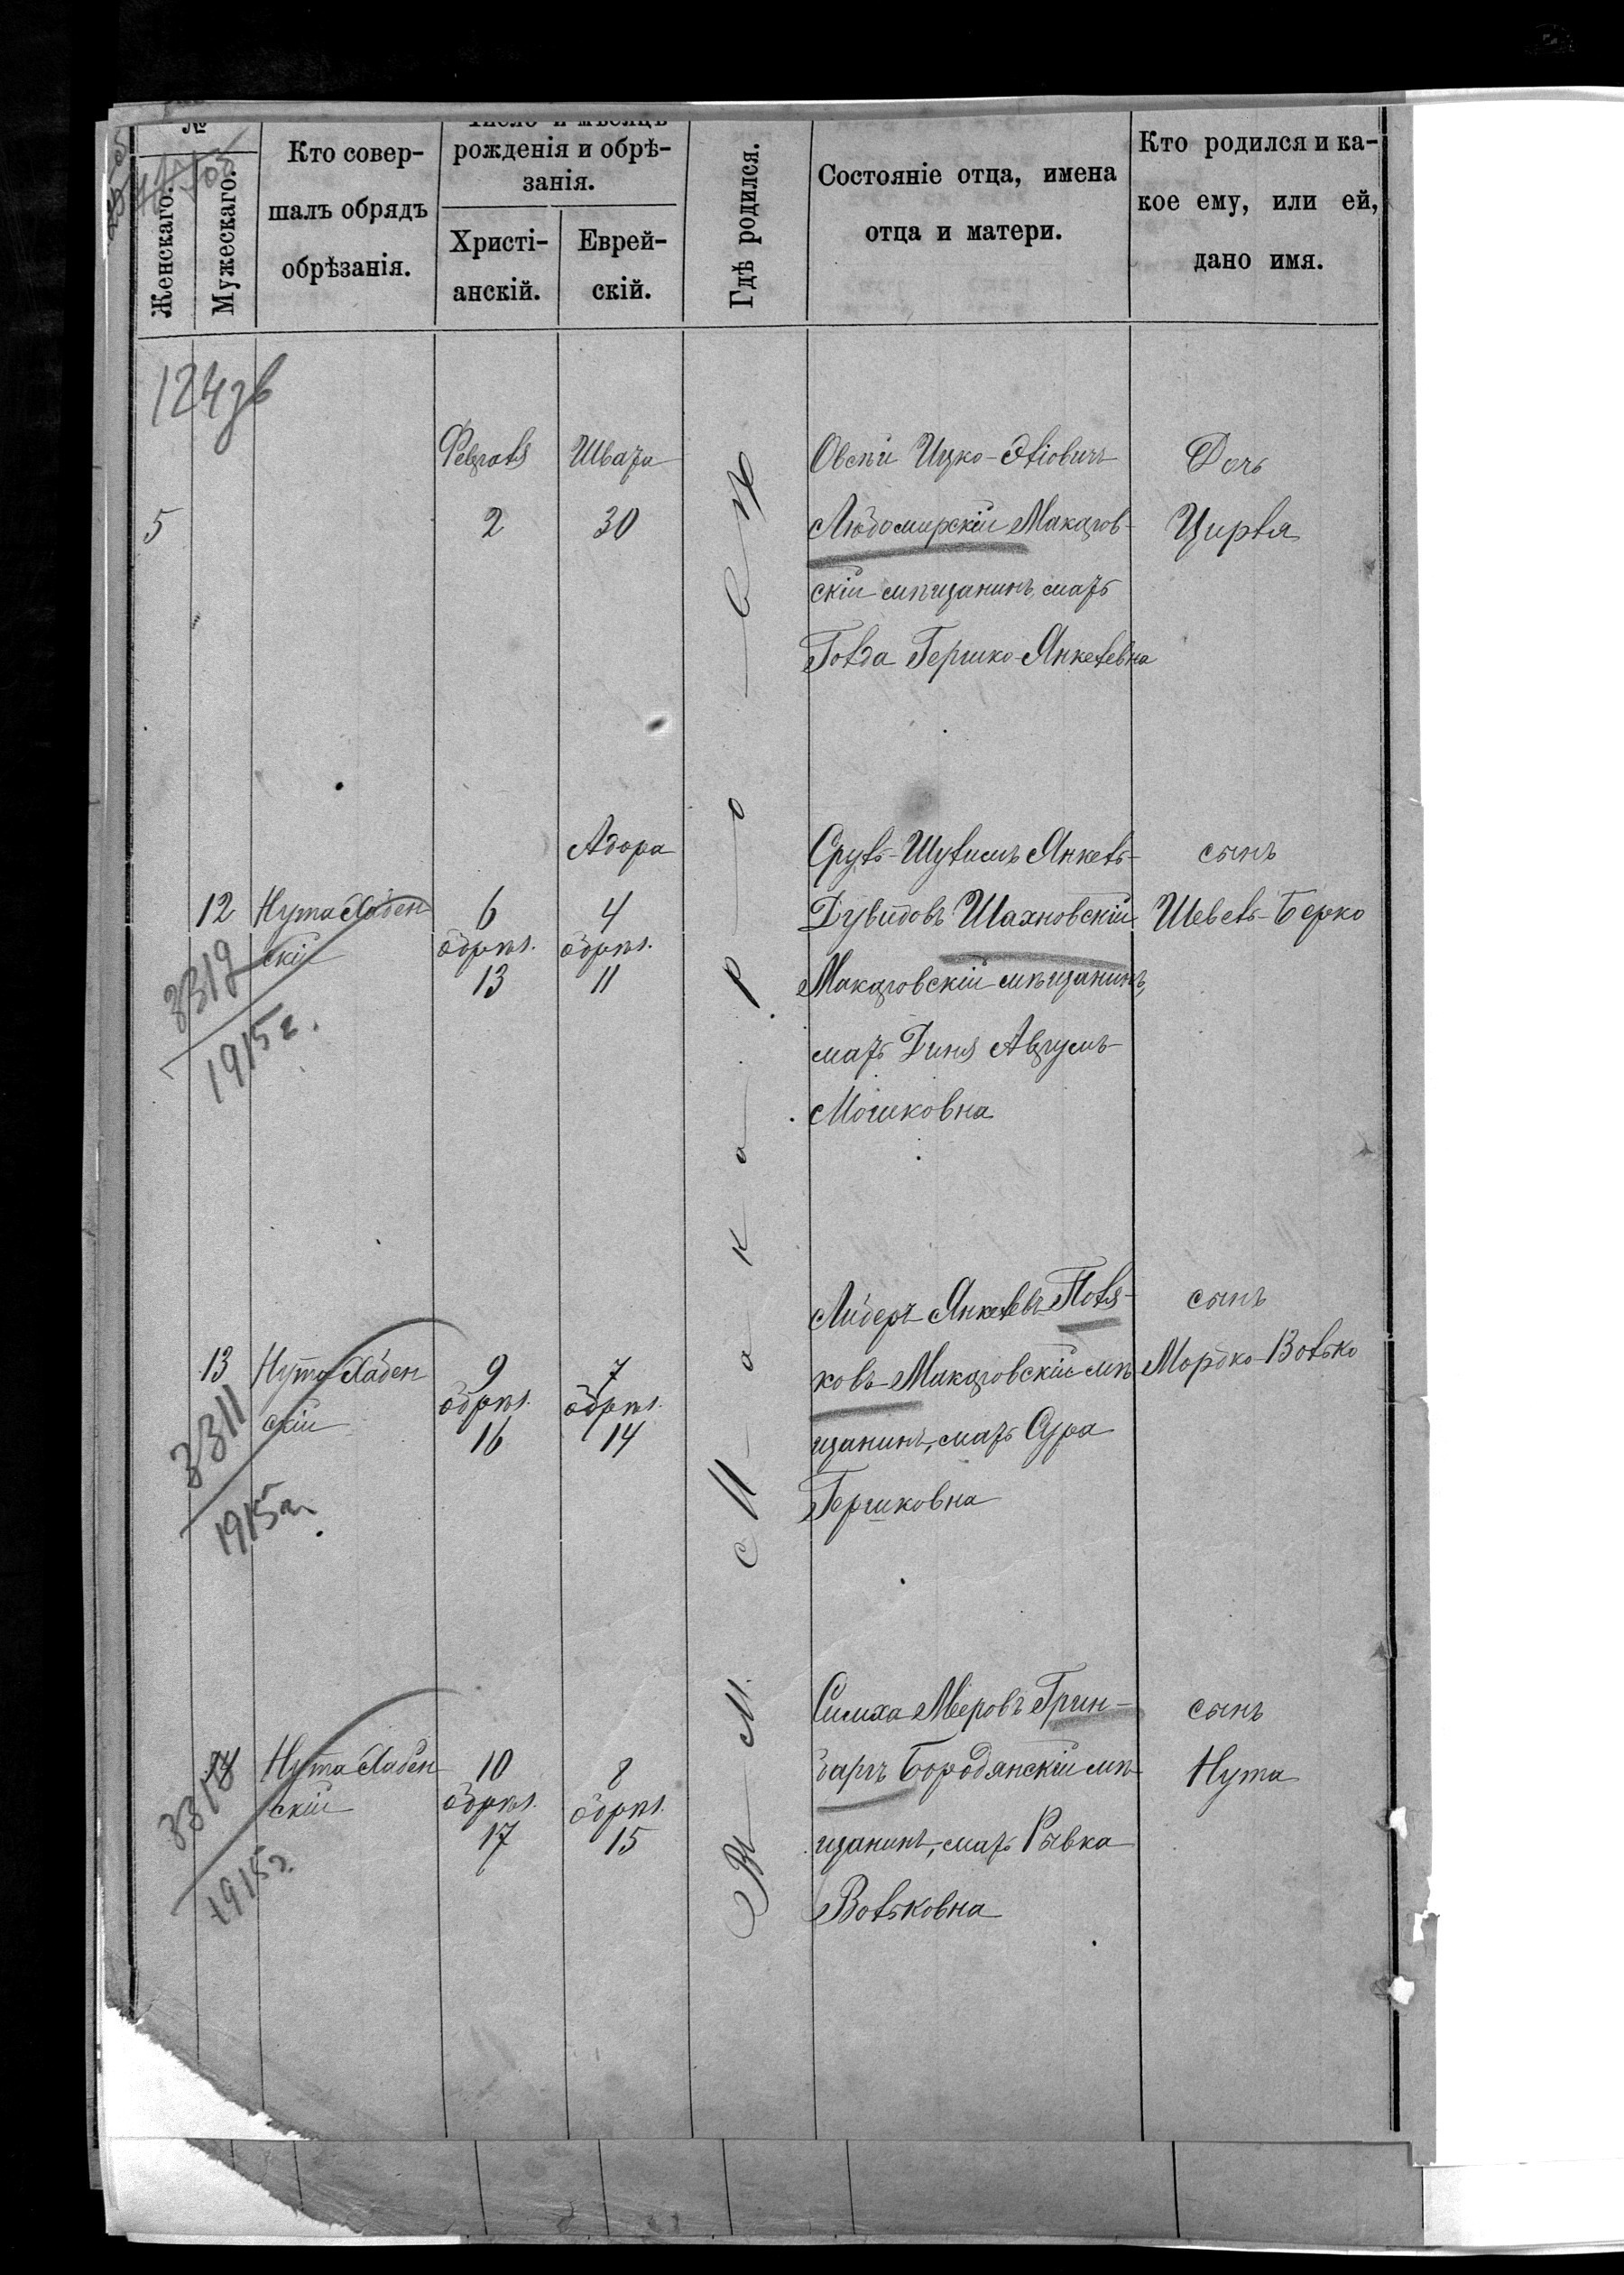 №
Женскаго.
Мужескаго.
Кто совер-
шалъ обрядъ
обрѣзанія.
Число и мѣсяцъ
рожденія и обрѣ-
занія.
Христі-
анскій.
Еврей-
скій.
Гдѣ родился.
Состояніе отца, имена
отца и матери.
Кто родился и ка-
кое ему, или ей,
дано имя.
124зв
Въ м. Макаровѣ
5
Февраля
2
Швата
30
Овсѣй Ицко-Эліовичъ
Людомирскій Макаров-
скій мѣщанинъ, мать
Голда Гершко-Янкелевна
Дочь
Цирля
12
Нута Хабен
скій
6
обрѣз.
13
Адара
4
обрѣз.
11
Сруль-Шулимъ Янкель-
Дувидовъ Шахновскій
Макаровскій мѣщанинъ,
мать Диня Аврумъ-
Мошковна
сынъ
Шевель-Берко
3319
1915 г.
13
Нута Хабен
скій
9
обрѣз.
16
7
обрѣз.
14
Либеръ Янкелевъ Поля-
ковъ Макаровскій мѣ
щанинъ, мать Сура
Гершковна
сынъ
Мордко-Волько
3311
1915 г.
14
Нута Хабен
скій
10
обрѣз.
17
8
обрѣз.
15
Симха Мееровъ Грин-
баргъ Бородянскій мѣ
щанинъ, мать Рывка
Вольковна
сынъ
Нута
1915 г.